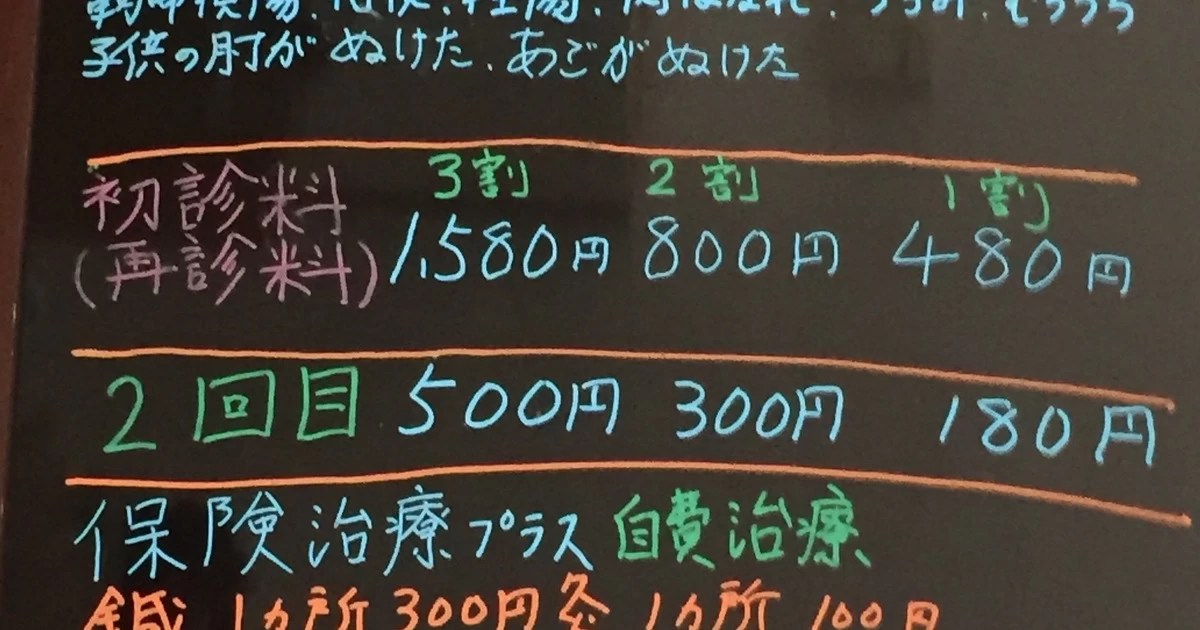 子供の肘がぬけた、あごがぬけた
3割 2割 1割
初診料
(再診料) 1,580円 800円 480円
2回目 500円 300円 180円
保険治療プラス自費治療
鍼 1ヵ所 300円 灸 1ヵ所 100円